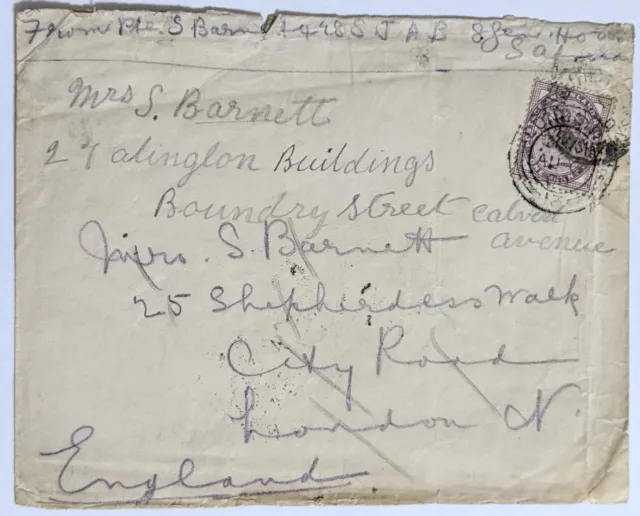 From Pte. S Barnett 478 S J A B 8 Gen. Hos
S Africa
Mrs S. Barnett
27 alington Buildings
Boundry Street calvert
avenue
Mrs. S. Barnett
25 Shepherdess Walk
City Road
London N.
England.